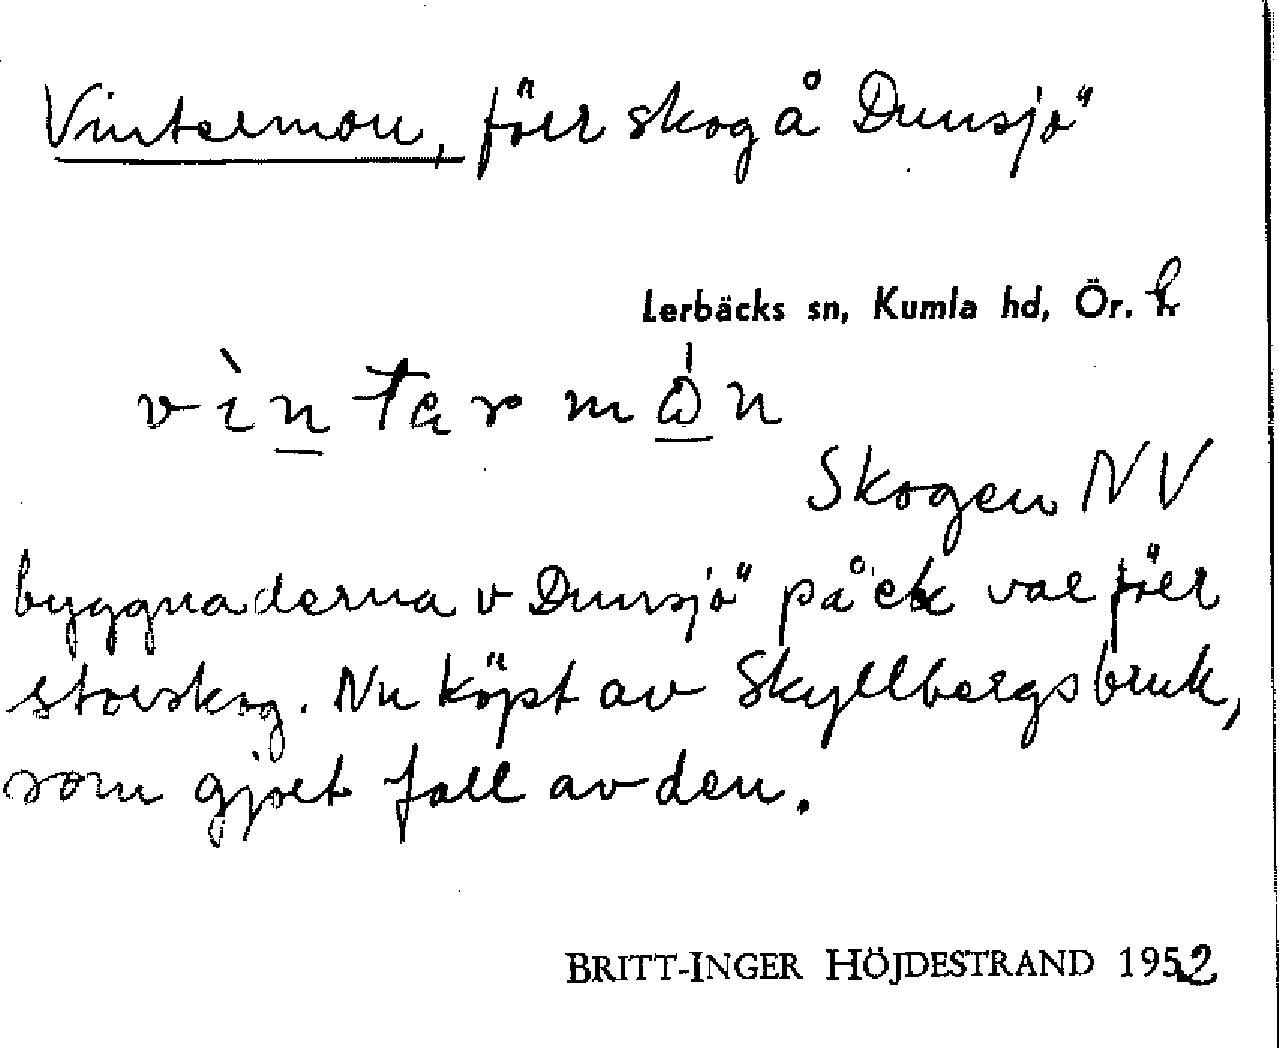 Vintermon, förr skog å Dunsjö
Lerbäcks sn, Kumla hd, Ör. l
vìntarmån
Skogen NV
byggnaderna v Dunsjö påck var förr
storskog. Nu köpt av Skyllbergsbruk,
som gjort fall av den.
BRITT-INGER HÖJDESTRAND 1952